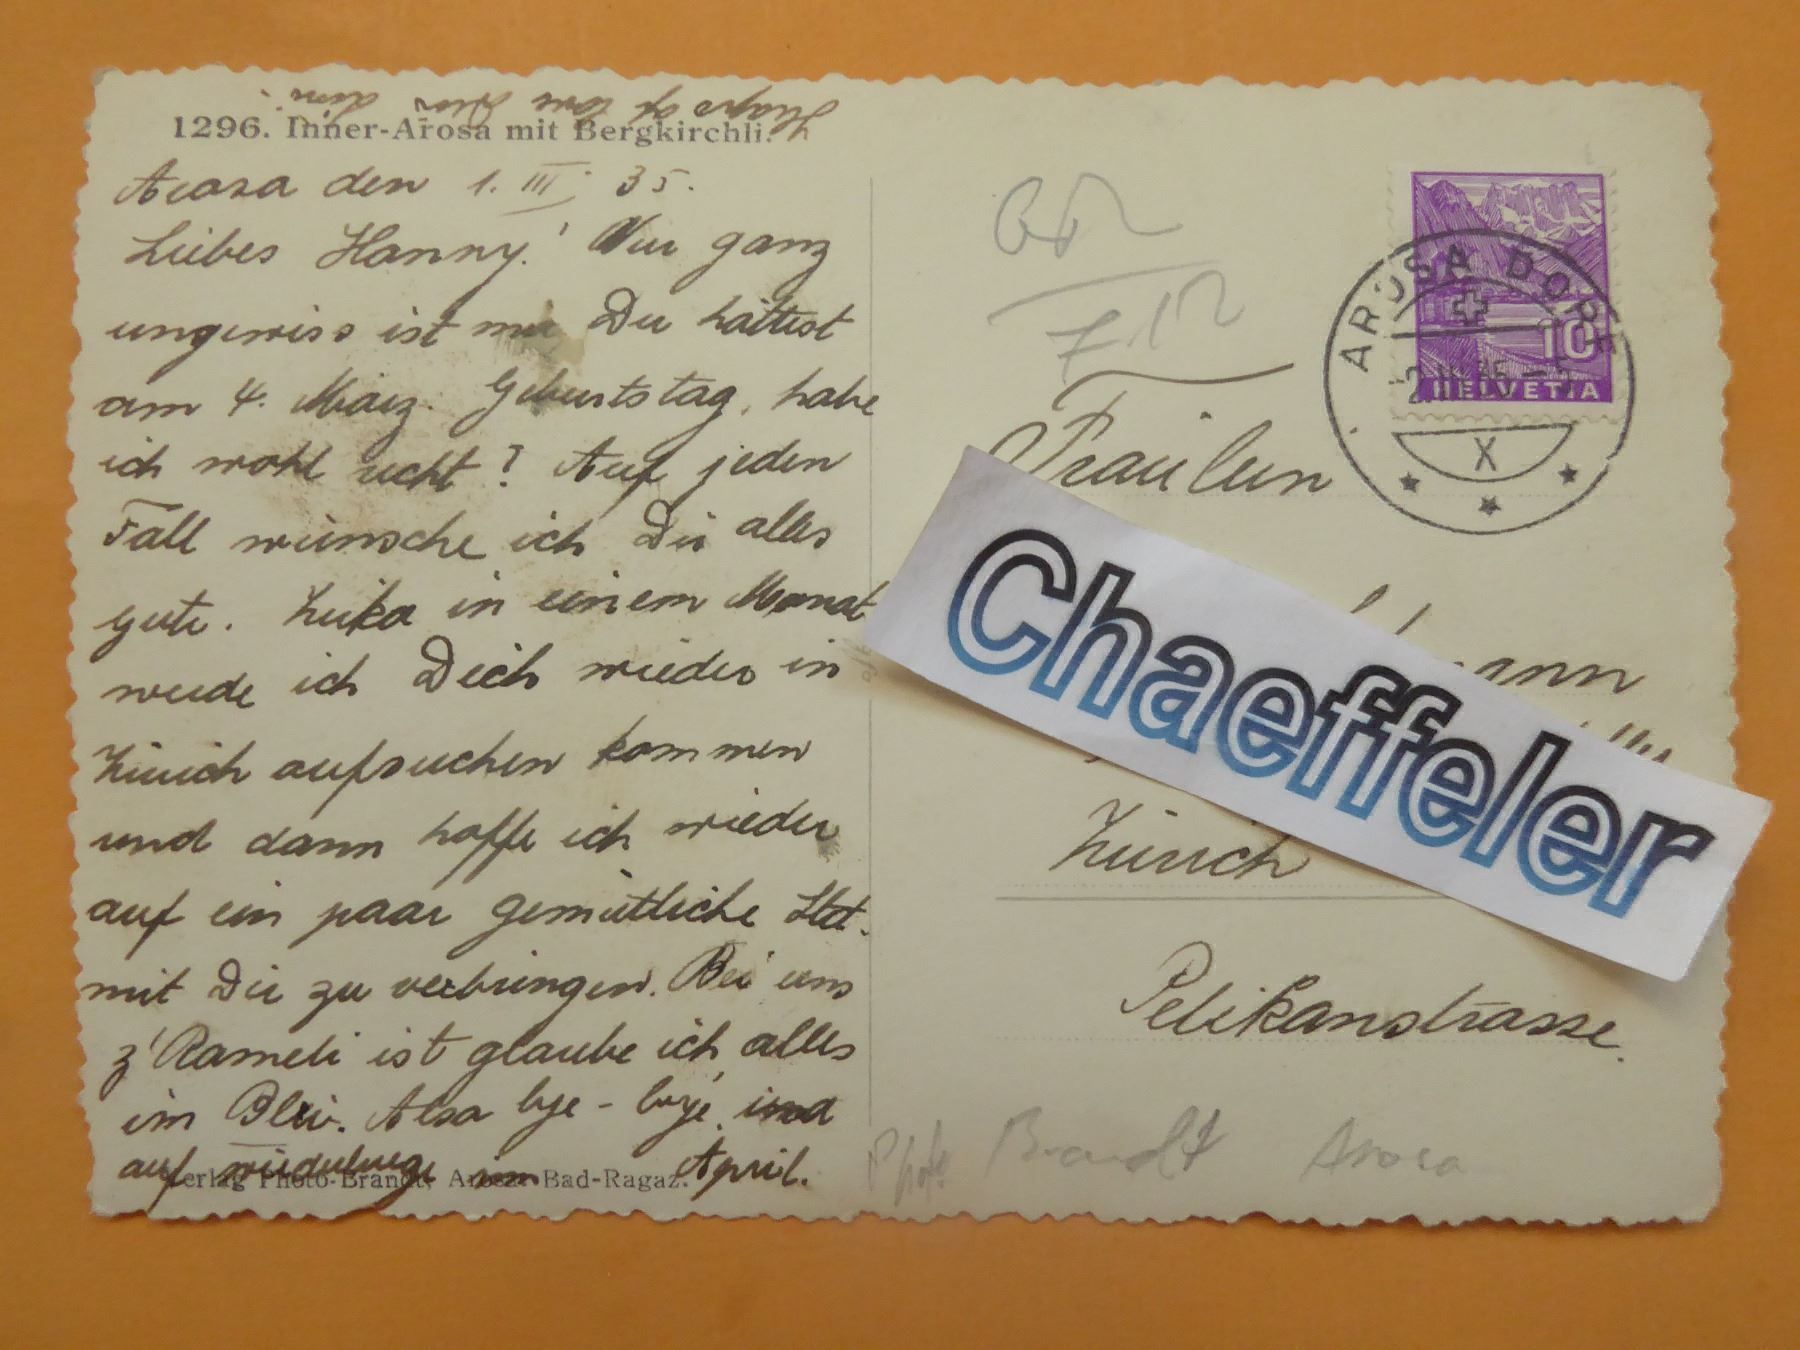 1296. Inner-Arosa mit Bergkirchli.
Arosa den 1. III. 35.
Liebes Hanny! Nur ganz
ungewiss ist mir, Du hättest
am 4. März. Geburtstag, habe
ich wohl recht? Auf jeden
Fall wünsche ich Dir alles
gute. Zirka in einem Monat
werde ich Dich wieder in
Zürich aufsuchen kommen
und dann hoffe ich wieder
auf ein paar gemütliche Std.
mit Dir zu verbringen. Bei uns
z'Rameli ist glaube ich alles
im Blei. Also bye-bye, und
auf im April.
Verlag Photo-Brandt, Arosa-Bad-Ragaz.
AROSA DORF
X
10
HELVETIA
Fräulein
Chaeffeler
Zürich
Pelikanstrasse.
Photo Brandt Arosa